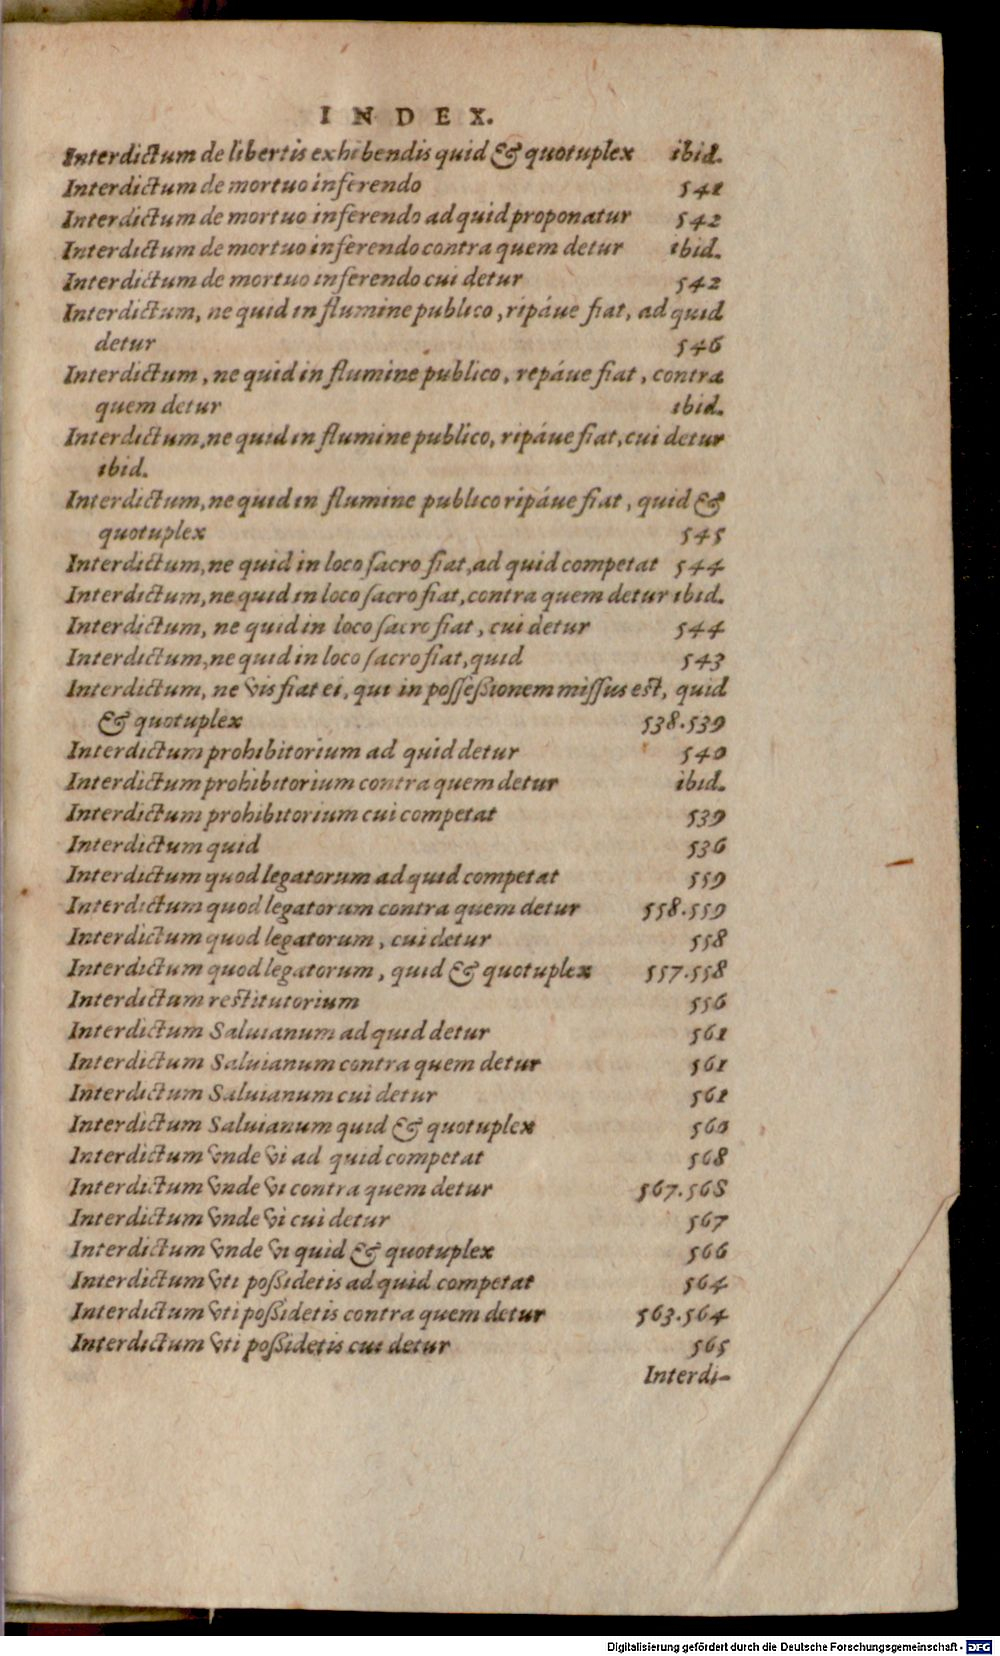 INDEX.
Interdictum de libertis exhibendis quid & quotuplex ibid.
Interdictum de mortuo inferendo 541
Interdictum de mortuo inferendo ad quid proponatur 542
Interdictum de mortuo inferendo contra quem detur ibid.
Interdictum de mortuo inferendo cui detur 542
Interdictum, ne quid in flumine publico, ripáue fiat, ad quid
detur 546
Interdictum, ne quid in flumine publico, repáue fiat, contra
quem detur ibid.
Interdictum, ne quid in flumine publico, ripáue fiat, cui detur
ibid.
Interdictum, ne quid in flumine publico ripáue fiat, quid &
quotuplex 545
Interdictum, ne quid in loco sacro fiat, ad quid competat 544
Interdictum, ne quid in loco sacro fiat, contra quem detur ibid.
Interdictum, ne quid in loco sacro fiat, cui detur 544
Interdictum, ne quid in loco sacro fiat, quid 543
Interdictum, ne vis fiat ei, qui in possessionem missus est, quid
& quotuplex 538.539
Interdictum prohibitorium ad quid detur 540
Interdictum prohibitorium contra quem detur ibid.
Interdictum prohibitorium cui competat 539
Interdictum quid 536
Interdictum quod legatorum ad quid competat 559
Interdictum quod legatorum contra quem detur 558.559
Interdictum quod legatorum, cui detur 558
Interdictum quod legatorum, quid & quotuplex 557.558
Interdictum restitutorium 556
Interdictum Saluianum ad quid detur 561
Interdictum Saluianum contra quem detur 561
Interdictum Saluianum cui detur 561
Interdictum Saluianum quid & quotuplex 560
Interdictum vnde vi ad quid competat 568
Interdictum vnde vi contra quem detur 567.568
Interdictum vnde vi cui detur 567
Interdictum vnde vi quid & quotuplex 566
Interdictum vti possidetis ad quid competat 564
Interdictum vti possidetis contra quem detur 563.564
Interdictum vti possidetis cui detur 565
Interdi-
Digitalisierung gefördert durch die Deutsche Forschungsgemeinschaft - DFG